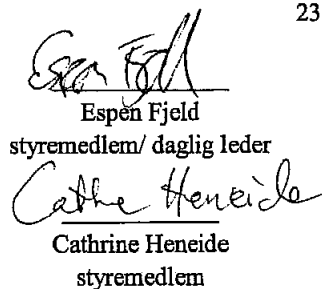 23
Espen Fjeld
Espen Fjeld
styremedlem/ daglig leder
Cathrine Heneide
Cathrine Heneide
styremedlem